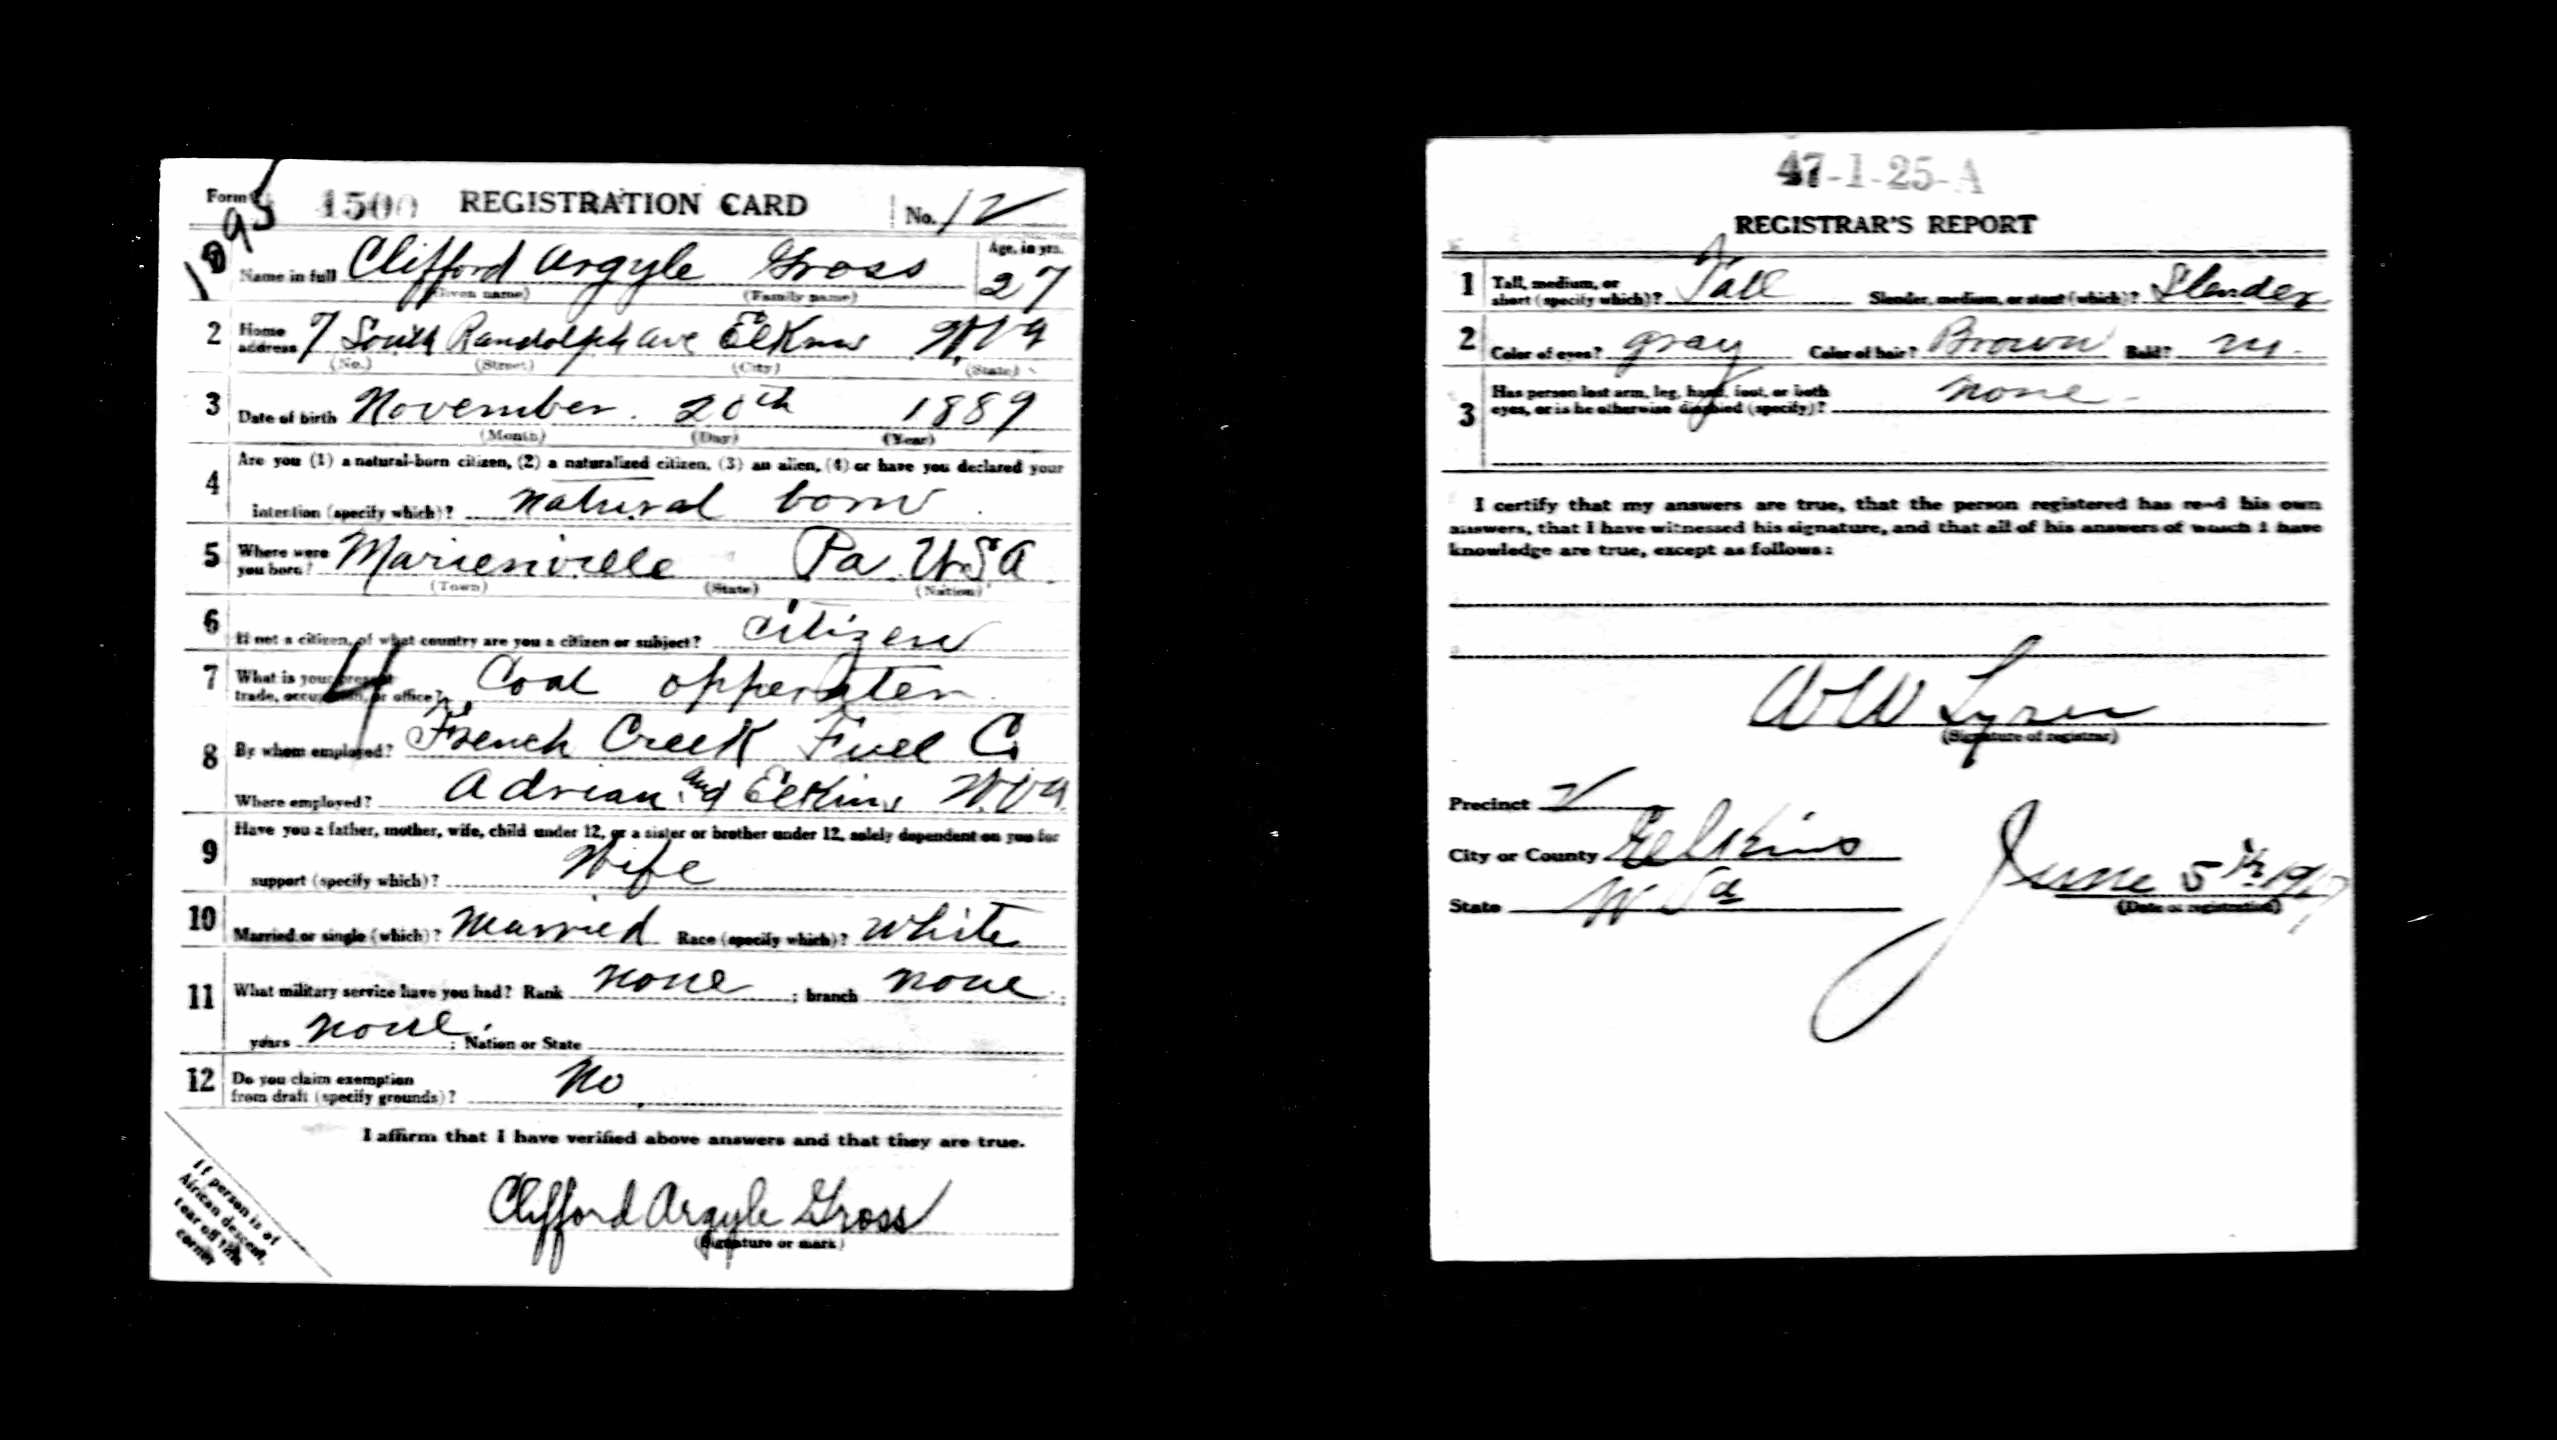 Form 1 1500 REGISTRATION CARD No. 12
1895
Name in full Clifford Argyle Gross Age, in yrs. 27
(Given name) (Family name)
2 Home address 7 South Randolph ave Elkins W.Va
(No.) (Street) (City) (State)
3 Date of birth November. 20th 1889
(Month) (Day) (Year)
Are you (1) a natural-born citizen, (2) a naturalized citizen, (3) an alien, (4) or have you declared your
4 intention (specify which)? natural born
5 Where were you born? Marienville Pa. U.S.A.
(Town) (State) (Nation)
6 If not a citizen, of what country are you a citizen or subject? citizen
7 What is your present trade, occupation, or office? Coal opperater
4
8 By whom employed? French Creek Fuel Co
Where employed? Adrian and Elkins W.Va.
9 Have you a father, mother, wife, child under 12, or a sister or brother under 12, solely dependent on you for
support (specify which)? Wife
10 Married or single (which)? Married Race (specify which)? White
11 What military service have you had? Rank none ; branch none ;
years none. ; Nation or State
12 Do you claim exemption
from draft (specify grounds)? No
I affirm that I have verified above answers and that they are true.
Clifford Argyle Gross
(Signature or mark)
If person is of
African descent,
tear off this
corner
47-1-25-A
REGISTRAR'S REPORT
1 Tall, medium, or
short (specify which)? Tall Slender, medium, or stout (which)? Slender
2 Color of eyes? gray Color of hair? Brown Bald?
3 Has person lost arm, leg, hand, foot, or both
eyes, or is he otherwise disabled (specify)? none
I certify that my answers are true, that the person registered has read his own
answers, that I have witnessed his signature, and that all of his answers of which I have
knowledge are true, except as follows:
W W
(Signature of registrar)
Precinct 2
City or County Elkins
State W Va
June 5th 1917
(Date of registration)